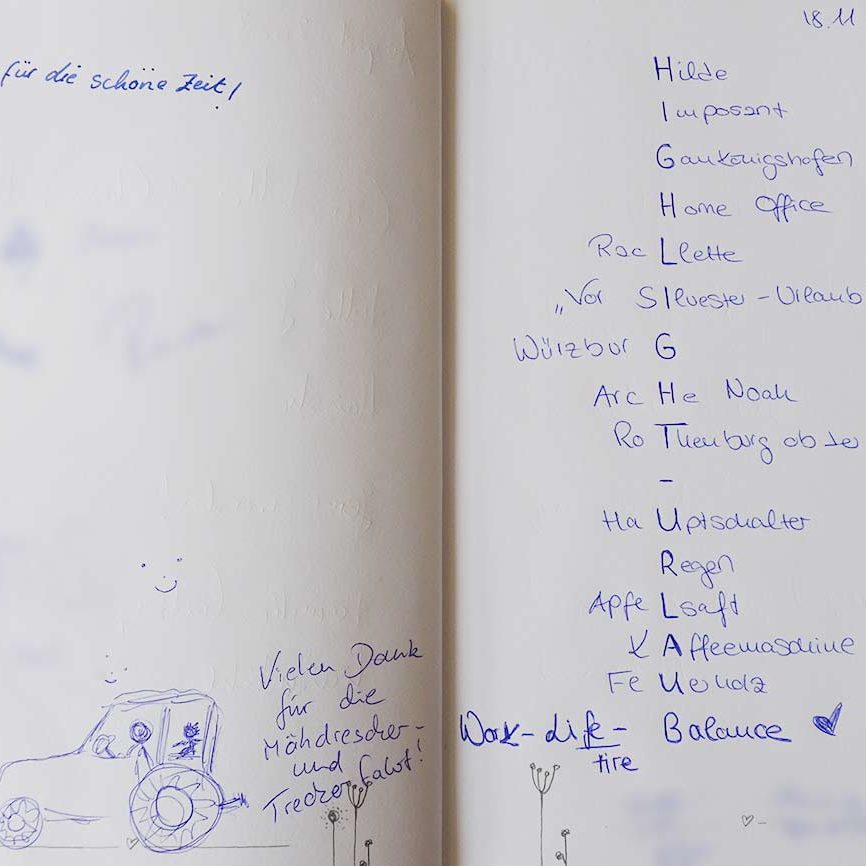 für die schöne Zeit!
Vielen Dank
für die
Mähdrescher-
und
Treckerfahrt!
18.11
Hilde
Imposant
Gaukönigshofen
Home Office
RacLlette
„Vor SIlvester-Urlaub
WürzburG
ArcHe Noah
RoThenburg ob der
-
HaUptschalter
Regen
ApfeLsaft
KAffeemaschine
FeUerholz
Work-Life- Balance
fire